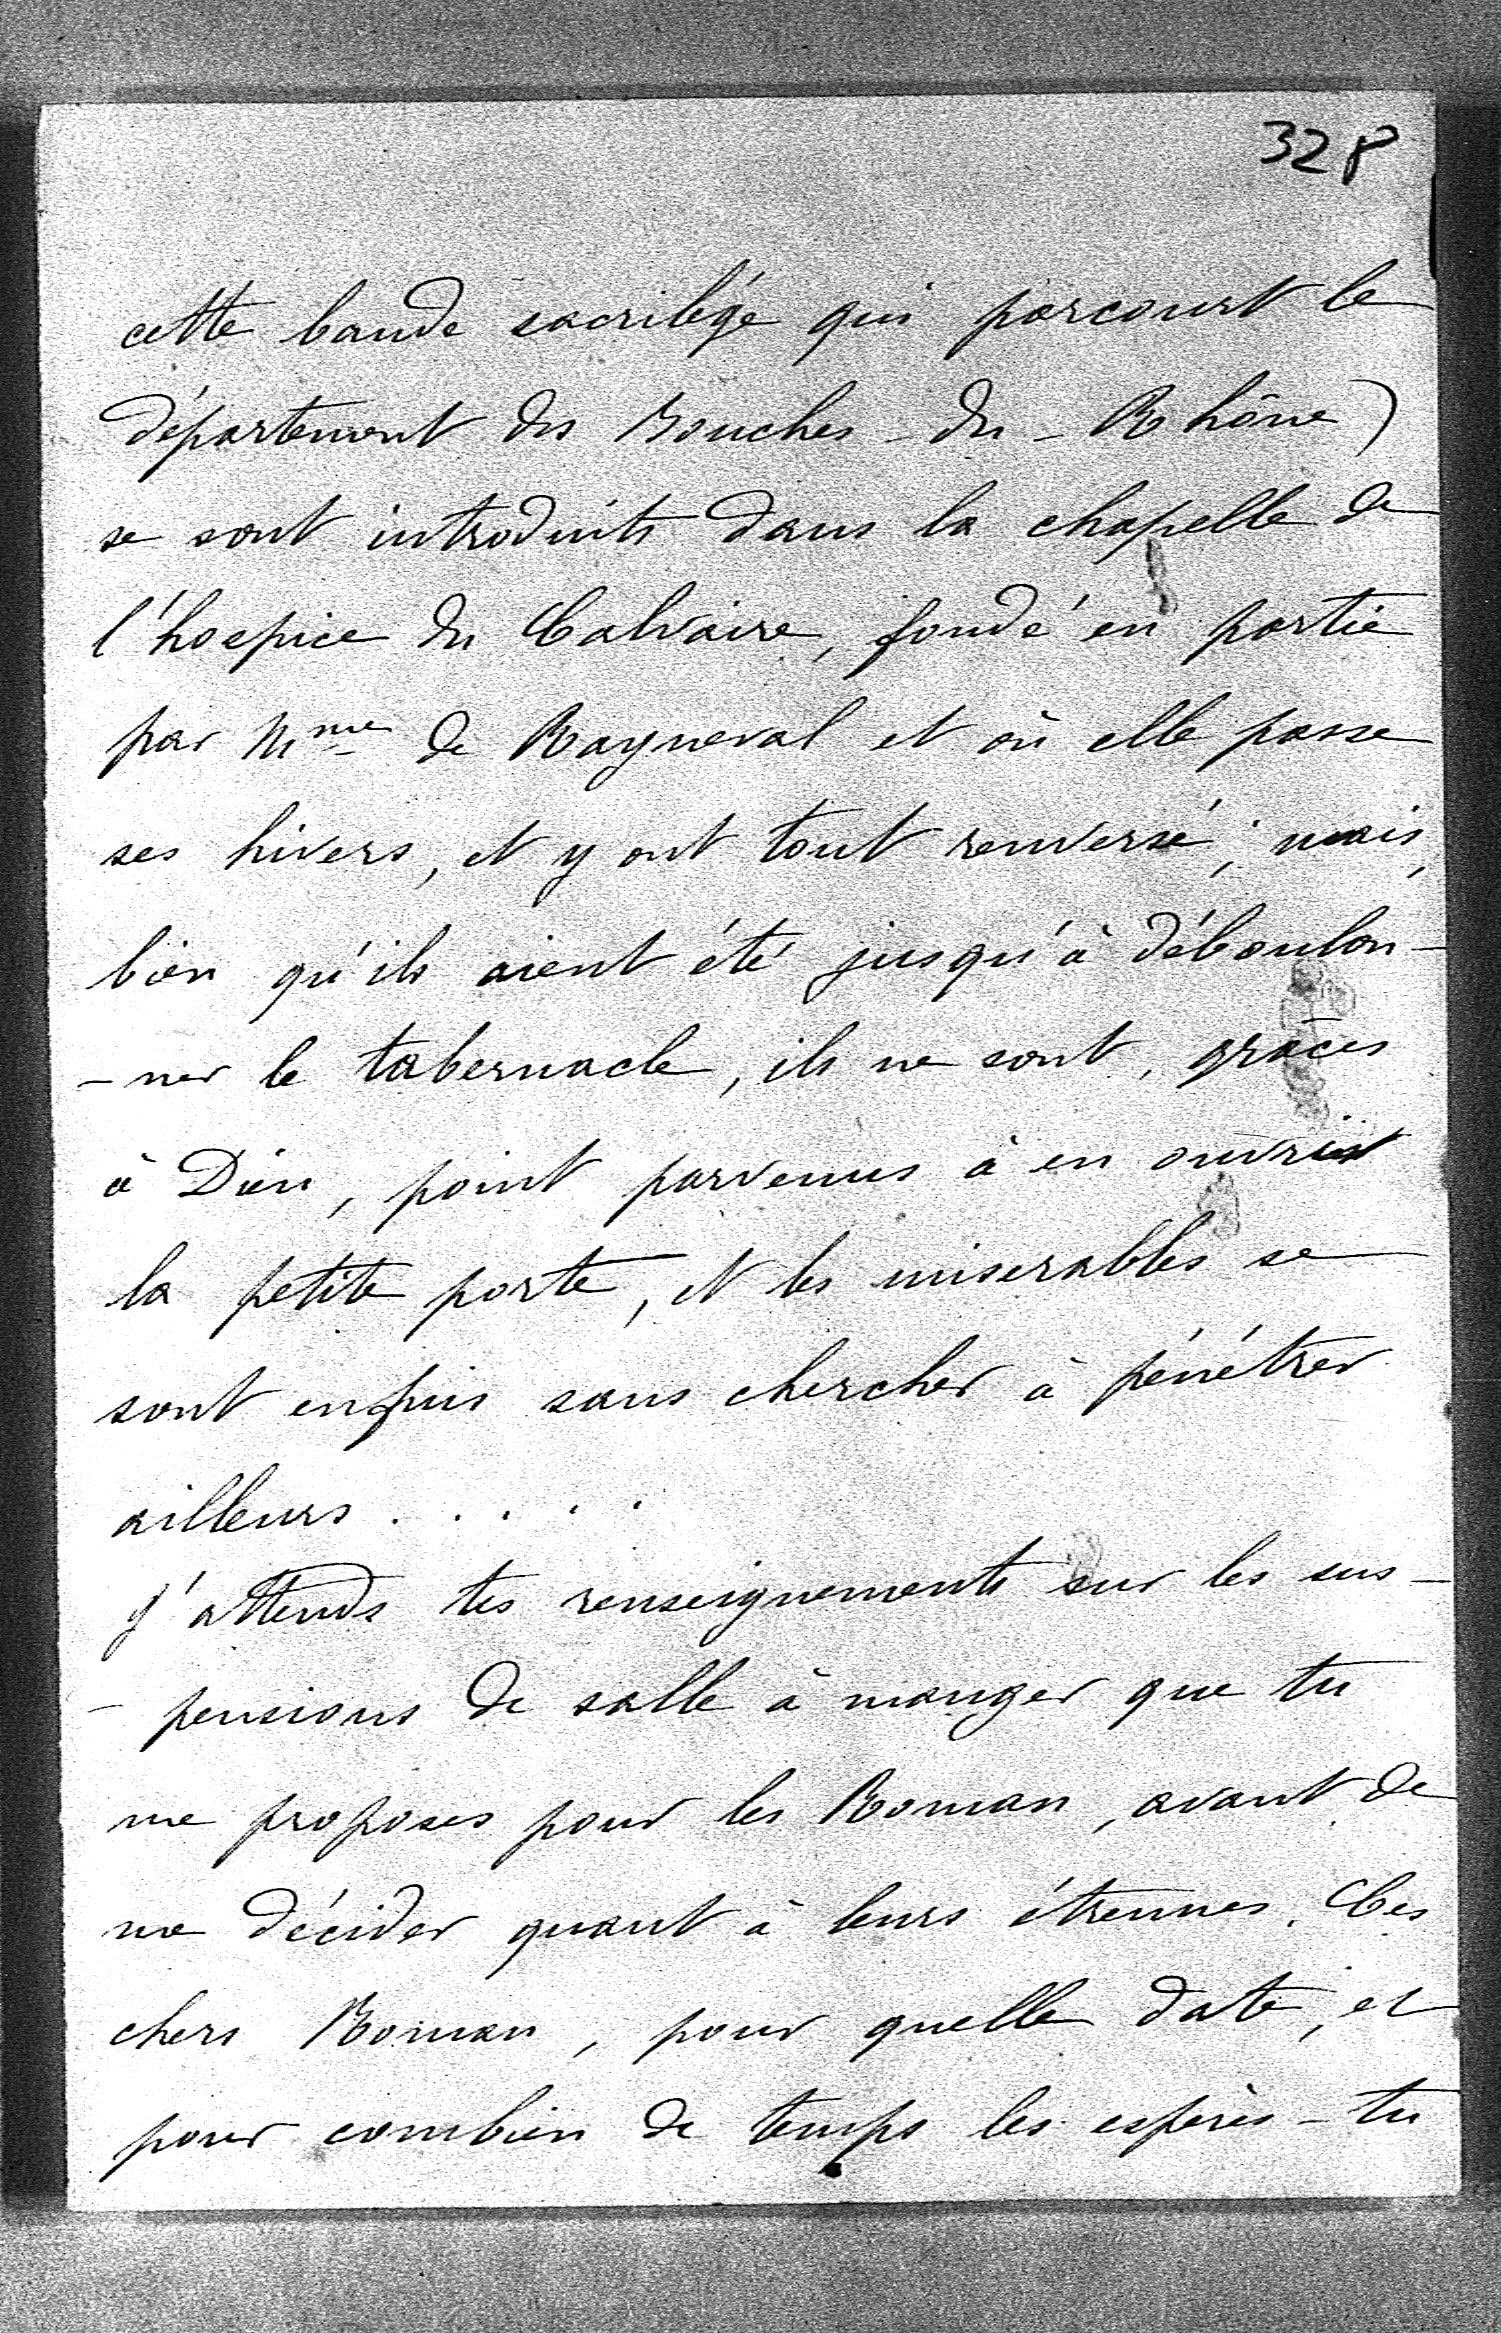 328
cette bande sacrilège qui parcourt le
département des Bouches-du-Rhône)
se sont introduits dans la chapelle de
l'hospice du Calvaire, fondé en partie
par Mme de Rayneval et où elle passe
ses hivers, et y ont tout renversé; mais,
bien qu'ils aient été jusqu'à déboulon-
-ner le tabernacle, ils ne sont, grâces
à Dieu, point parvenus à en ouvrir
la petite porte, et les miserables se
sont enfuis sans chercher à pénétrer
ailleurs . . . . .
J'attends tes renseignements sur les sus-
-pensions de salle à manger que tu
me proposes pour les Roman, avant de
me décider quant à leurs étrennes. Ces
chers Roman, pour quelle date, et
pour combien de temps les espères-tu